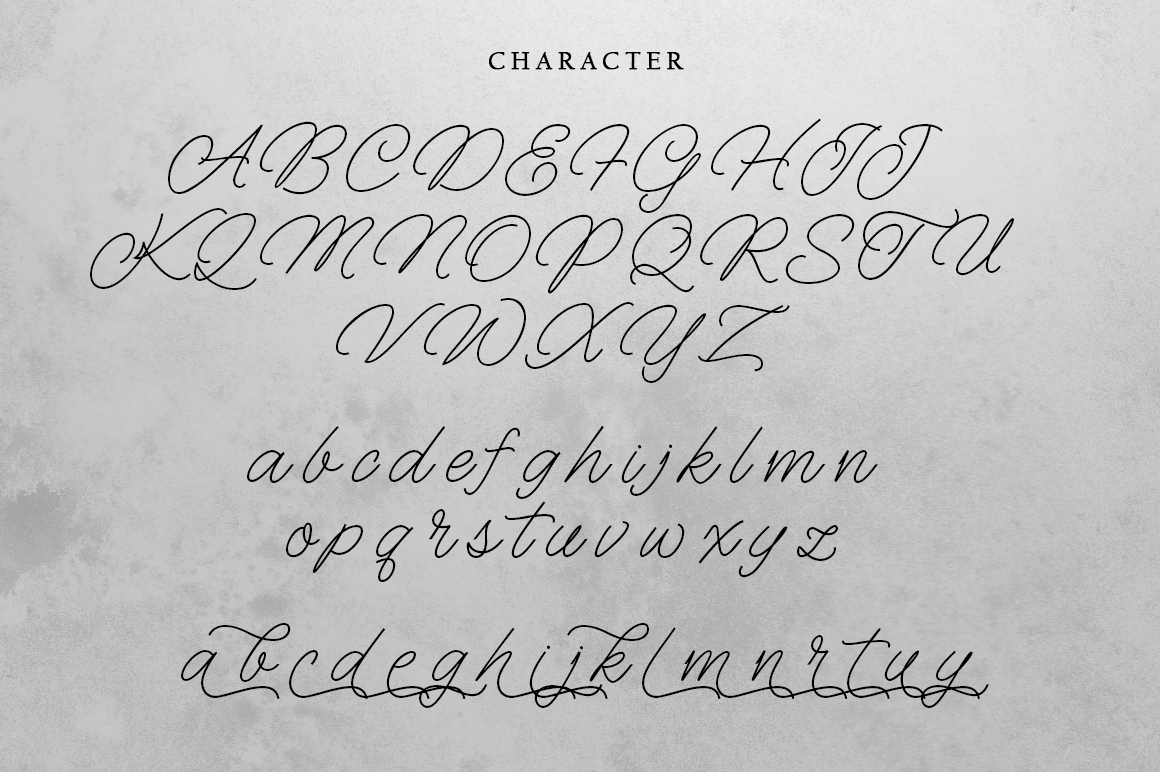 CHARACTER
ABCDEFGHIJ
KLMNOPQRSTU
VWXYZ
abcdefghijklmn
opqrstuvwxyz
abcdeghijklmnrtuy